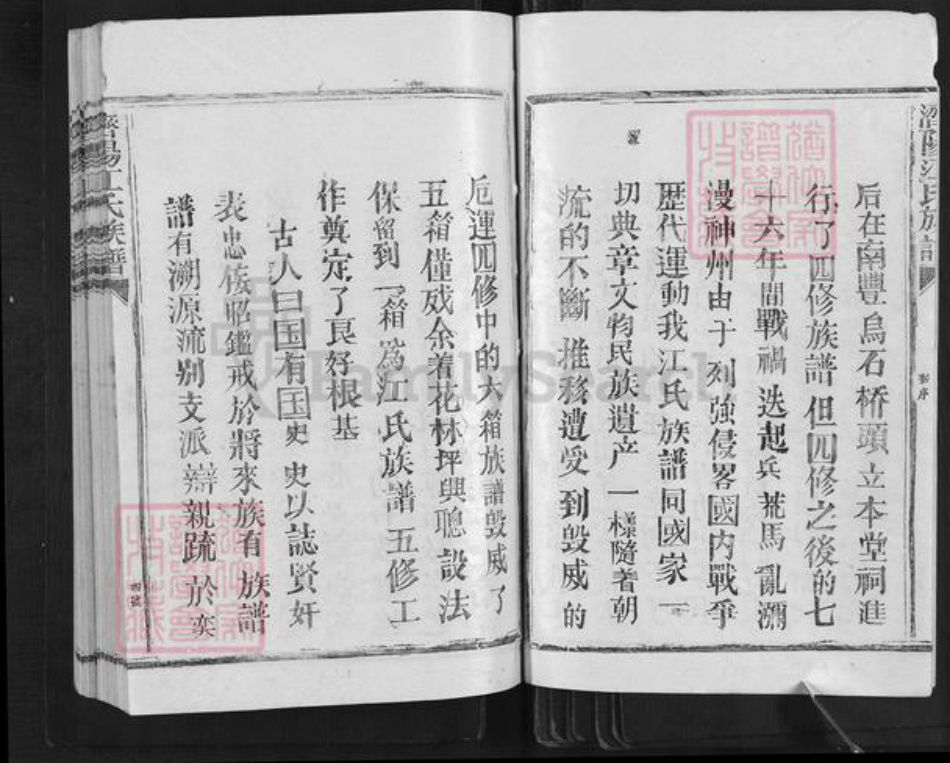 濟陽江氏族譜
后在南豐烏石桥頭立本堂祠進
行了四修族譜但四修之後的七
十六年間戰禍迭起兵荒馬亂瀰
漫神州由于列強侵畧國内戰爭
歷代運動我江氏族譜同國家一
切典章文物民族遺产一樣隨着朝
流的不斷推移遭受到毀威的
厄運四修中的六箱族譜毀威了
五箱僅威余着花林坪與聰設法
保留到一箱為江氏族譜五修工
作奠定了良好根基
古人曰国有国史史以誌賢奸
表忠佞昭鑑戒於將來族有族譜
譜有溯源流别支派辯親疏於奕
濟陽江氏族譜
FamilySearch